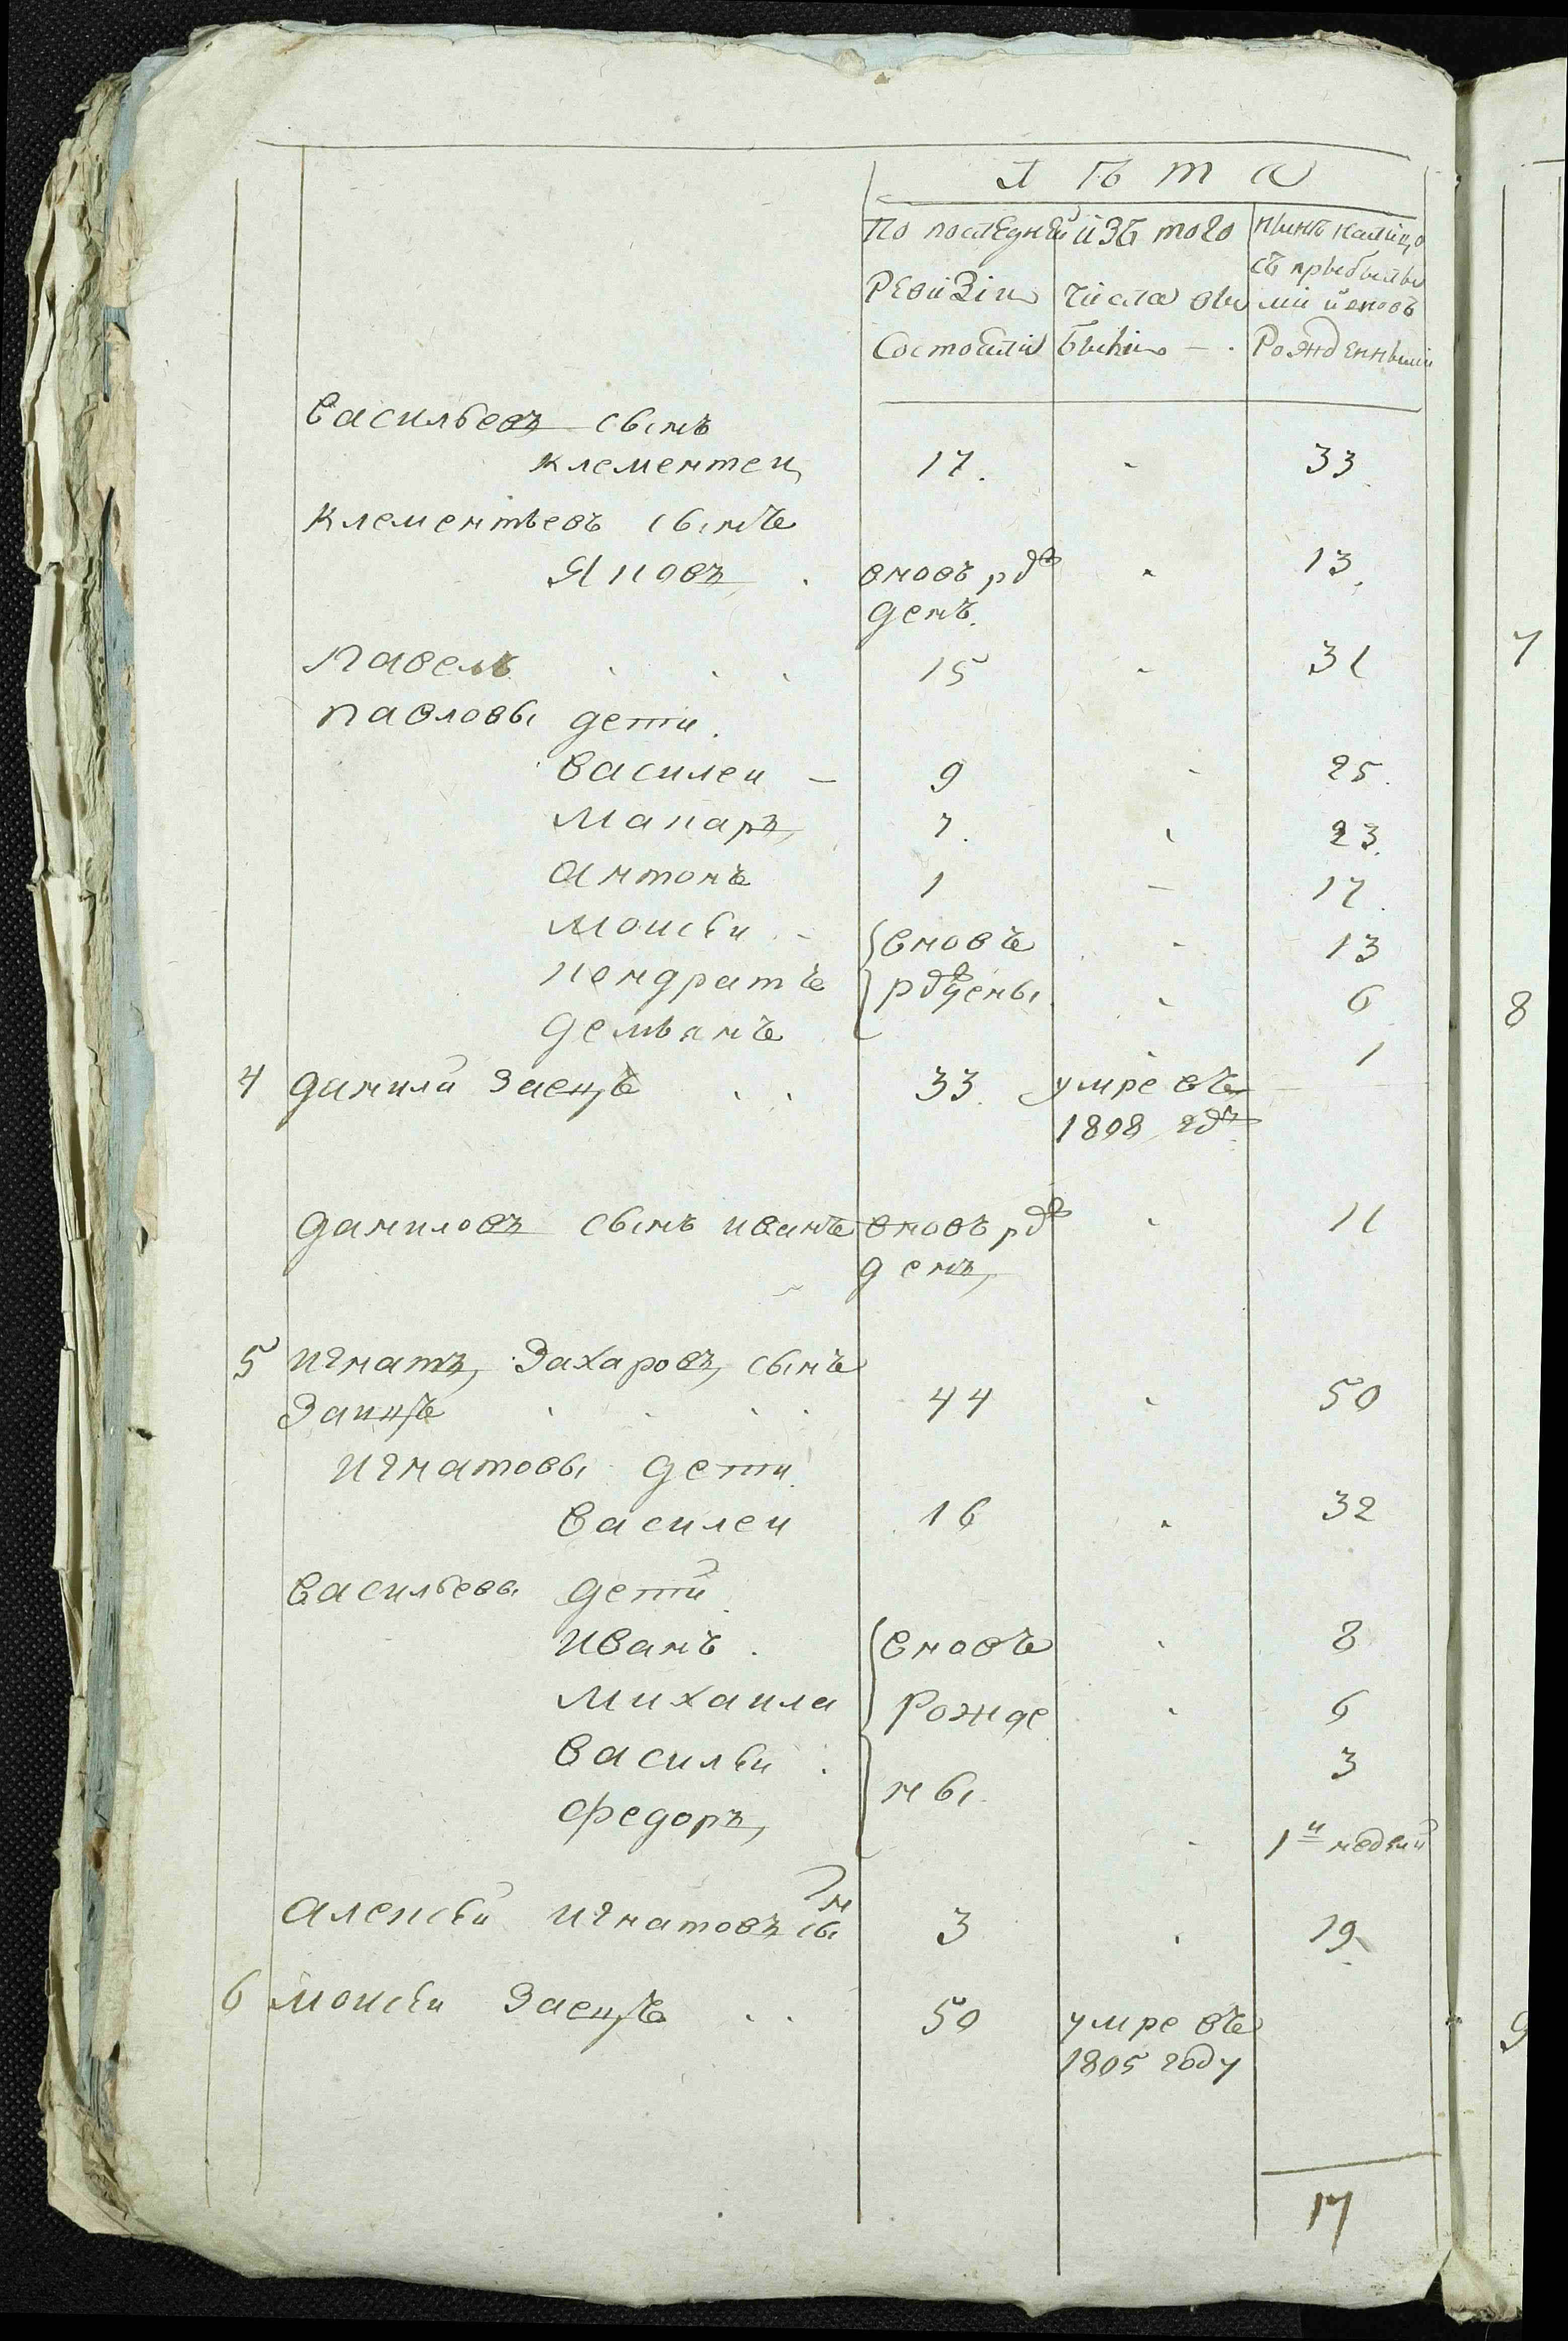 Лѣта
По последней Ревизіи Состояли
изъ того числа вы были
нынѣ налицо съ прыбылыми и вновь Рожденными
Васильевъ сынъ
Клементеи 17. 33.
Клементьевъ сынъ
Яковъ вновь рж 13.
денъ.
Павелъ 15 31
Павловы дети.
Василеи 9 25.
Макаръ 7. 23.
Антонъ 1 17.
Моисѣи вновь 13
Кондратъ ржdены 6
Демьянъ 1
4 Данила Заецъ 33. умре въ
1808 гдꙋ
Даниловъ сынъ Иванъ вновь рж 11
денъ
5 Игнатъ Захаровъ сынъ
Заицъ 44 50
Игнатовы дети
Василеи 16 32
Васильевы дети
Иванъ. вновь 8
Михаила Рожде 6
Васильи 3
ны.
Федоръ 1 и недели
Алексѣй Игнатовъ сынъ 3 19.
6 Моисѣи Заецъ 50 умре въ
1805 году
17
7
8
9